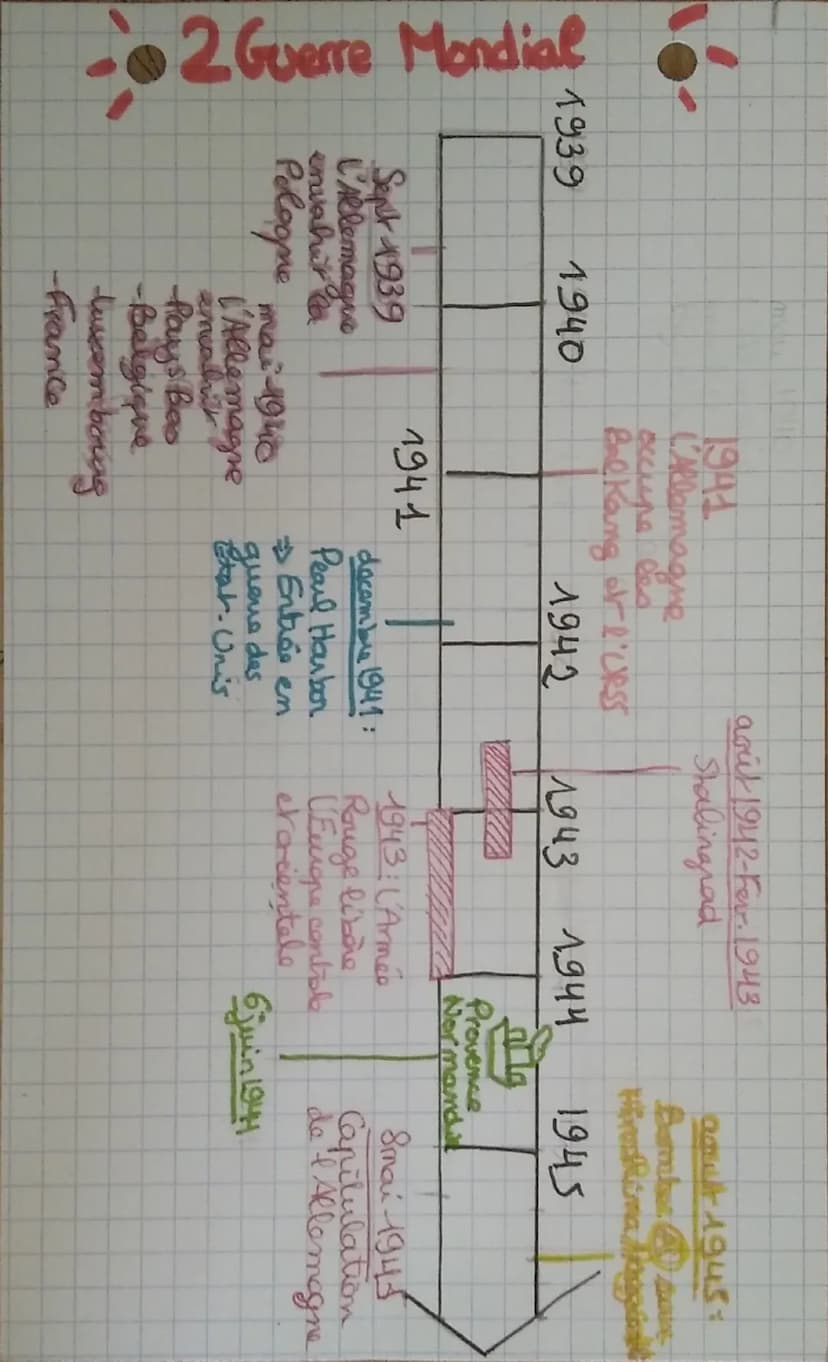 2 Guerre Mondial
1939
1940
1941
1942
1943
1944
1945
1941
l'Allemagne
occupe les
Balkans et l'URSS
août 1942-Fev. 1943
Stalingrad
août 1945:
Bombe A sur
Hiroshima, Nagasaki
Sept 1939
l'Allemagne
envahit la
Pologne
mai 1940
l'Allemagne
envahit
-Pays Bas
-Belgique
-Luxembourg
-France
décembre 1941:
Pearl Harbor
⇒ Entrée en
guerre des
État-Unis
1943: L'Armée
Rouge libère
l'Europe centrale
et orientale
Provence
Normandie
6 juin 1944
8 mai 1945
Capitulation
de l'Allemagne